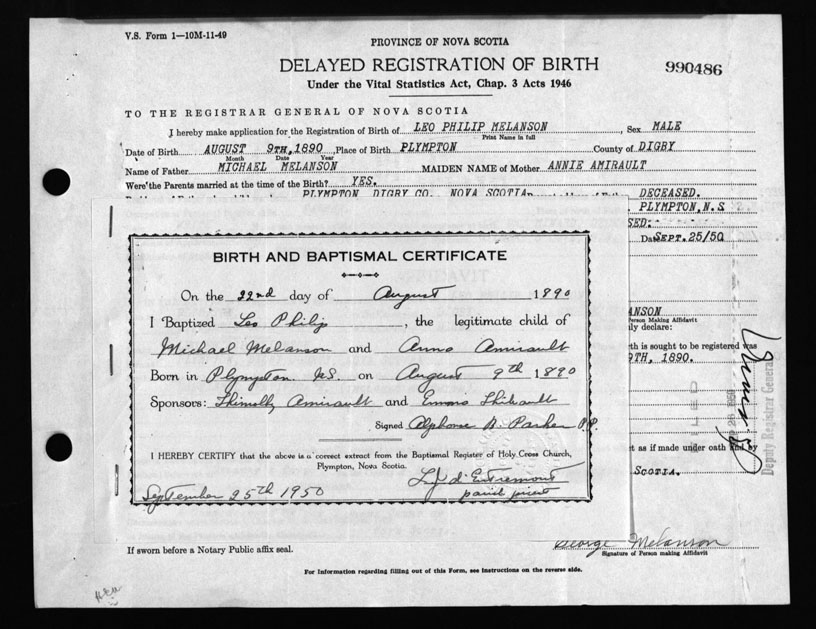 V.S. Form 1—10M-11-49
PROVINCE OF NOVA SCOTIA
DELAYED REGISTRATION OF BIRTH
990486
Under the Vital Statistics Act, Chap. 3 Acts 1946
TO THE REGISTRAR GENERAL OF NOVA SCOTIA
I hereby make application for the Registration of Birth of LEO PHILIP MELANSON, Sex MALE
Print Name in full
Date of Birth AUGUST 9TH, 1890 Place of Birth PLYMPTON County of DIGBY
Month Date Year
Name of Father MICHAEL MELANSON MAIDEN NAME of Mother ANNIE AMIRAULT
Were the Parents married at the time of the Birth? YES.
PLYMPTON DIGBY CO. NOVA SCOTIA DECEASED.
PLYMPTON, N.S.
SED.
Date SEPT. 25/50
BIRTH AND BAPTISMAL CERTIFICATE
On the 22nd day of August 1890
I Baptized Leo Philip, the legitimate child of
Michael Melanson and Anna Amirault
Born in Plympton N.S. on August 9th 1890
Sponsors: Amirault and Thibault
Signed Alphonse B. Parker P.P.
I HEREBY CERTIFY that the above is a correct extract from the Baptismal Register of Holy Cross Church,
Plympton, Nova Scotia.
L J d'Entremont
September 25th 1950 parish priest
ANSON
Person Making Affidavit
ly declare:
th is sought to be registered was
9TH, 1890.
Deputy Registrar General
ct as if made under oath and by
SCOTIA.
If sworn before a Notary Public affix seal.
George Melanson
Signature of Person making Affidavit
For Information regarding filling out of this Form, see Instructions on the reverse side.